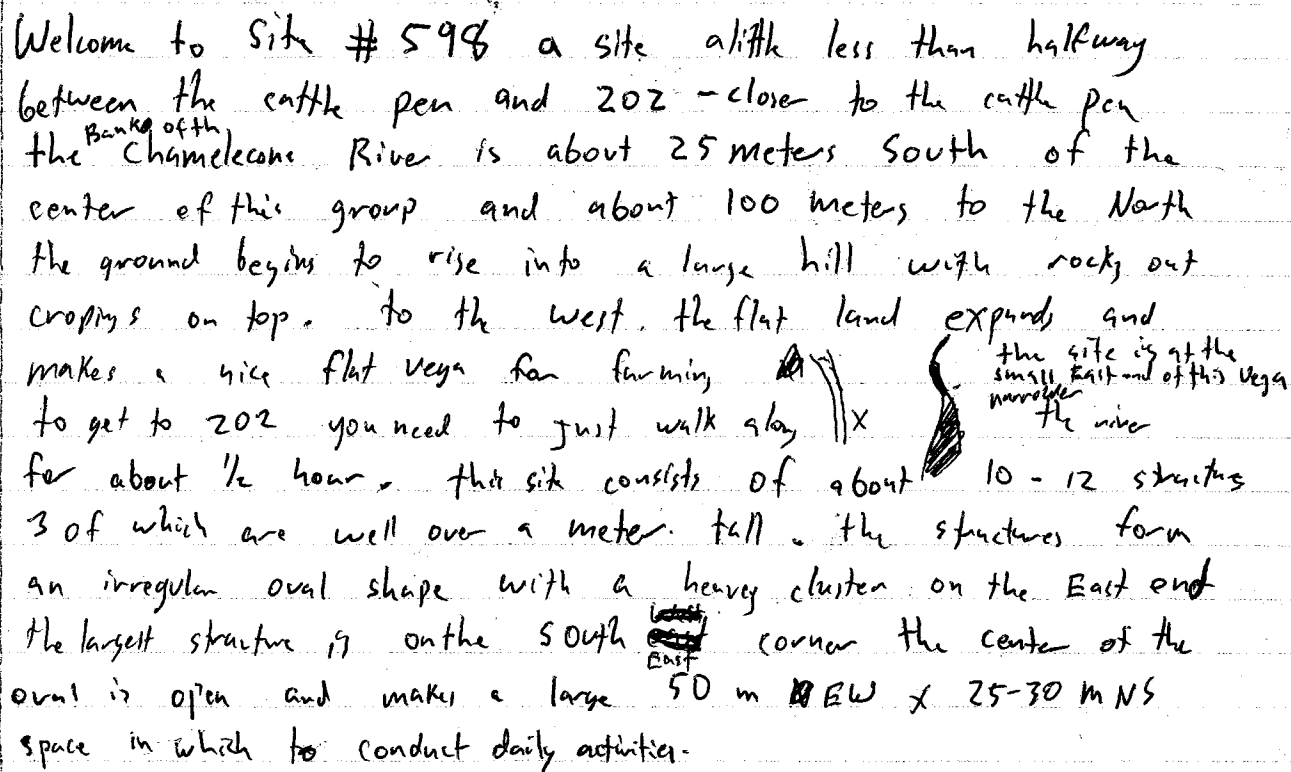 Welcome to Site # 598 a site alittle less than halfway
between the cattle pen and 202 - closer to the cattle pen
Banks of th
the Chamelecone River is about 25 meters South of the
center of this group and about 100 meters to the North
the ground begins to rise into a large hill with rocky out
cropings on top. to the west. the flat land expands and
makes a nice flat vega for farming
the site is at the
small East end of this vega
narrower
to get to 202 you need to just walk along the river
for about 1/2 hour. this site consists of about 10 - 12 structures
3 of which are well over a meter tall. the structures form
an irregular oval shape with a heavy cluster on the East end
the largest structure is on the South corner the center of the
East
oval is open and makes a large 50 m EW x 25-30 m NS
space in which to conduct daily activities.